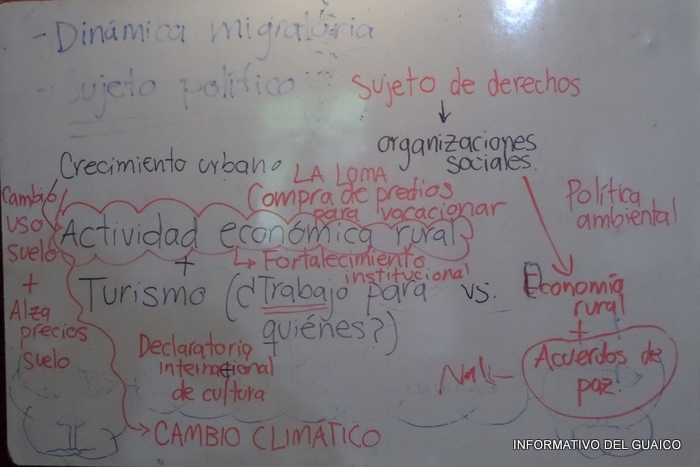 - Dinámica migratoria
- Sujeto político
Sujeto de derechos
organizaciones
sociales.
Crecimiento urbano
LA LOMA
Compra de predios
para vacacionar
Política
ambiental
Cambio
uso
suelo
+
Alza
precios
suelo
Actividad económica rural
+
Fortalecimiento
institucional
Turismo (dTrabajo para
quiénes?)
vs.
Economía
rural
+
Acuerdos de
paz.
Declaratoria
internacional
de cultura
CAMBIO CLIMÁTICO
INFORMATIVO DEL GUAICO